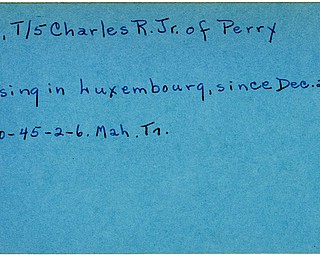 , T/5 Charles R. Jr. of Perry
sing in Luxembourg, since Dec. 2
0-45-2-6. Mah. Tr.